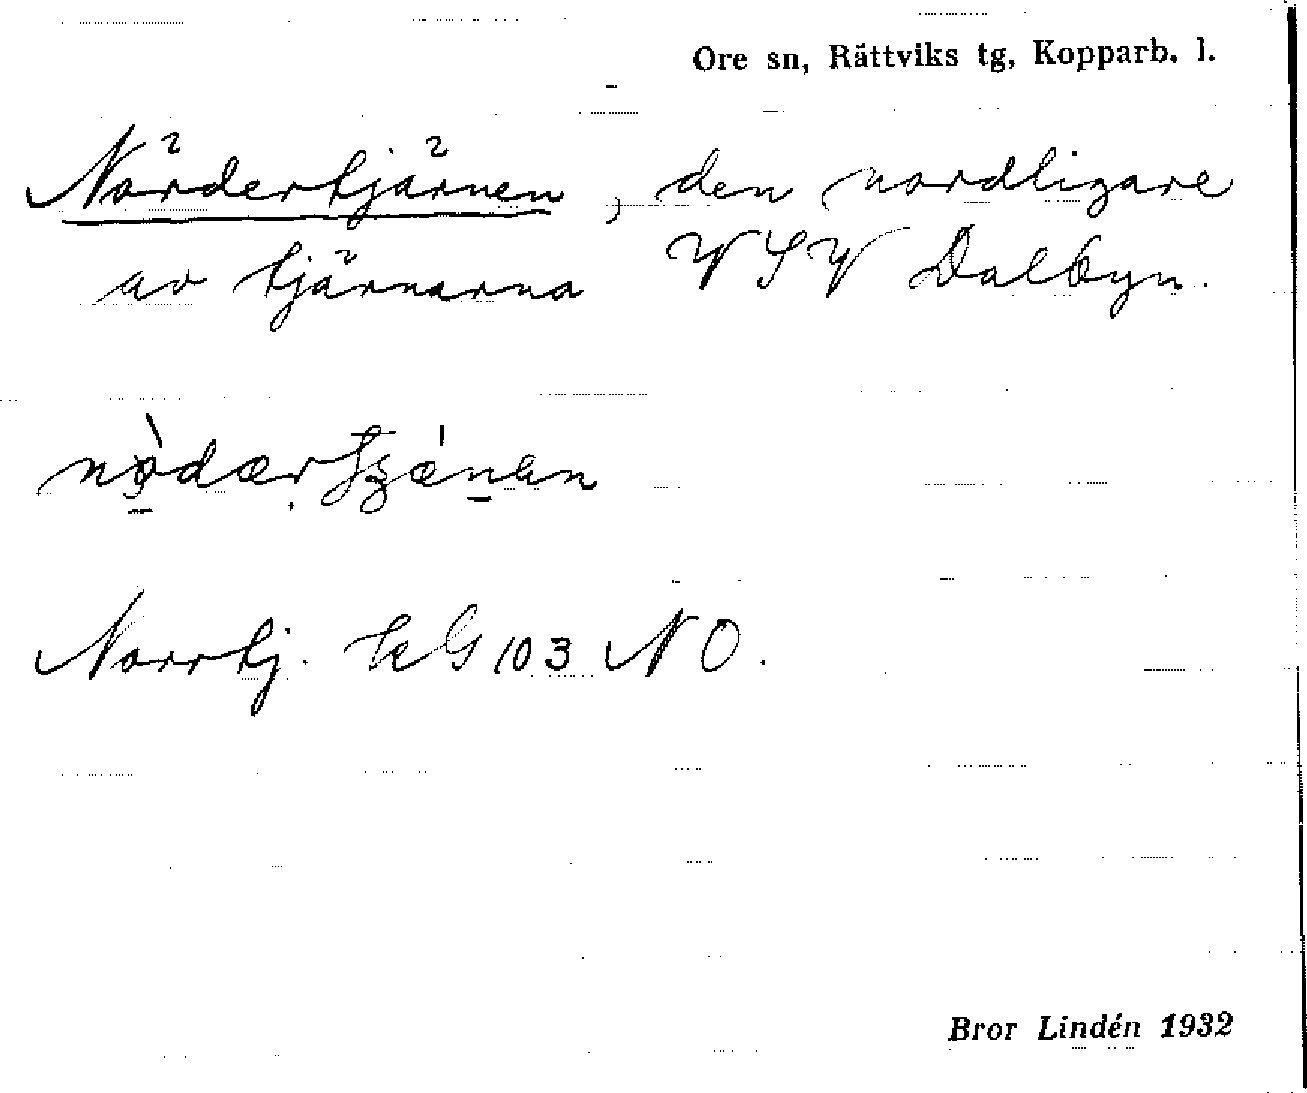 Ore sn, Rättviks tg, Kopparb. l.
Nördertjärnen, den nordligare
av tjärnarna VSV Dalbyn.
Norrtj. kG 103 NO.
Bror Lindén 1932